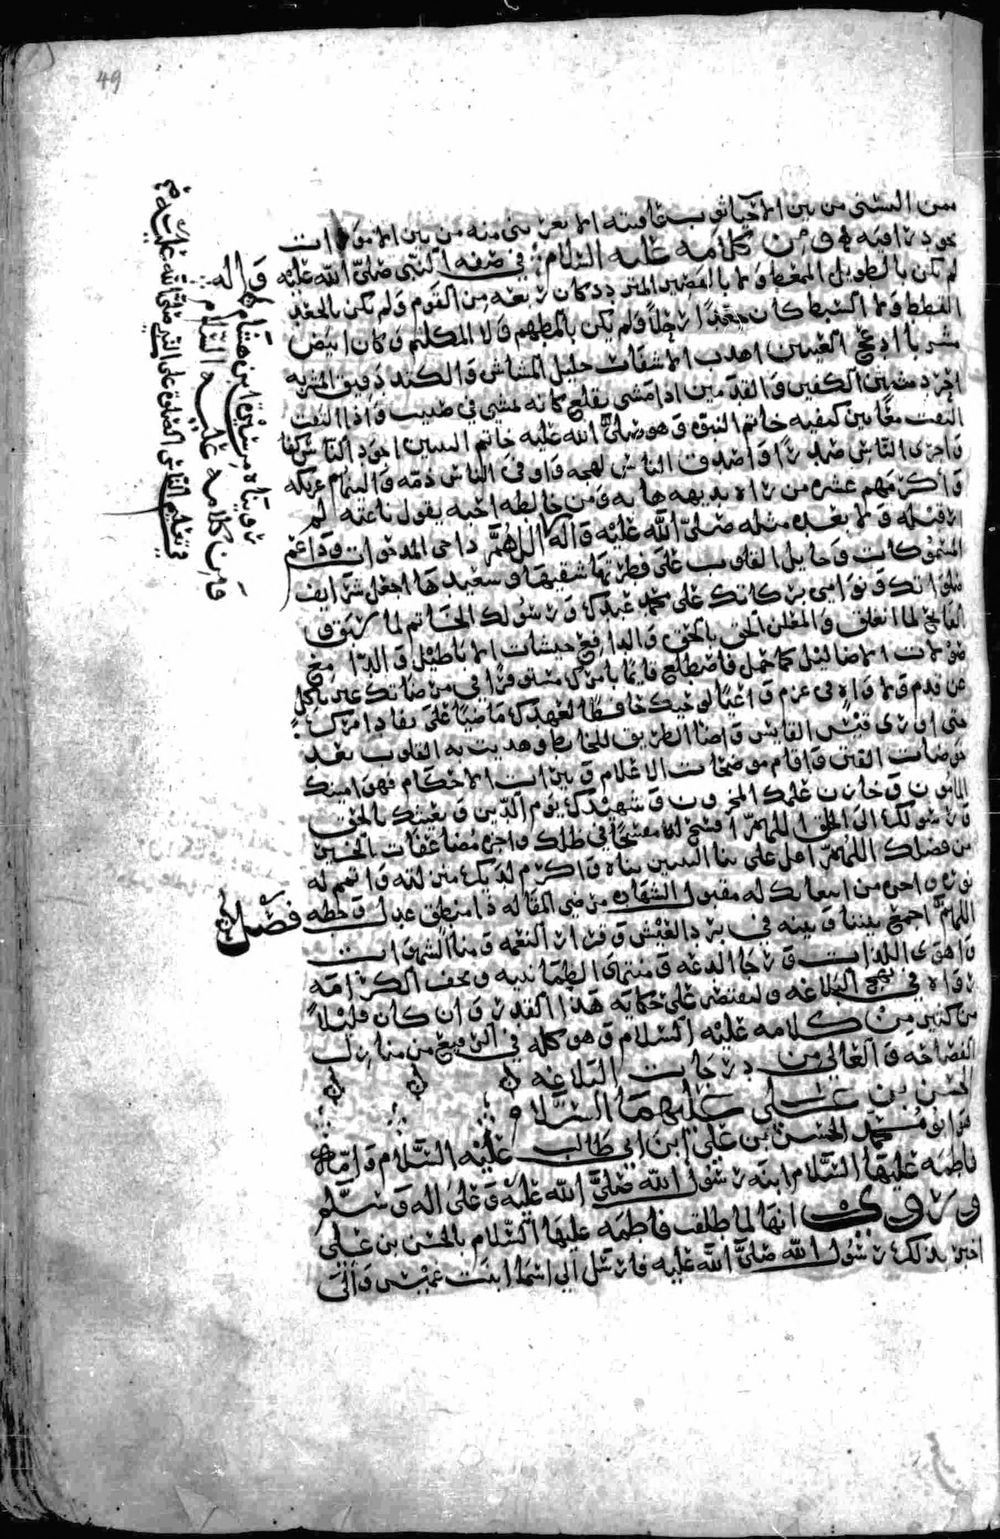 49
من بين الاحيا ثوب عافيته الا تعز بني منه من بين الاموات
بجود رافته ومن كلامه عليه السلام في صفه النبي صلى الله عليه
لم يكن بالطويل الممغط ولا بالقصير المتردد كان ربعه من القوم ولم يكن بالجعد
القطط ولا السبط كان جعدا رجلا ولم يكن بالمطهم ولا المكلثم وكان ابيض
مشربا ادعج العينين اهدب الاشفار جليل المشاش والكتد دقيق المسربه
اجرد شثن الكفين والقدمين اذا مشى تقلع كانه يمشي في صبب واذا التفت
التفت معا بين كتفيه خاتم النبوه وهو صلى الله عليه خاتم النبيين اجود الناس كفا
واجرى الناس صدرا واصدق الناس لهجه واوفى الناس ذمه والينهم عريكه
واكرمهم عشره من راه بديهه هابه ومن خالطه احبه يقول ناعته لم
ار قبله ولا بعده مثله صلى الله عليه واله اللهم داحي المدحوات وداعم
المسموكات وجابل القلوب على فطرتها شقيها وسعيدها اجعل شرايف
صلواتك ونوامي بركاتك على محمد عبدك ورسولك الخاتم لما سبق و
الفاتح لما انغلق والمعلن الحق بالحق والدافع جيشات الاباطيل والدامغ
صولات الاضاليل كما حمل فاضطلع قايما بامرك مستوفزا في مرضاتك غير ناكل
عن قدم ولا واه في عزم واعيا لوحيك حافظا لعهدك ماضيا على نفاذ امرك
حتى اورى قبس القابس واضا الطريق للخابط وهديت به القلوب بعد
خوضات الفتن واقام موضحات الاعلام ونيرات الاحكام فهو امينك
المامون وخازن علمك المخزون وشهيدك يوم الدين وبعيثك بالحق
ورسولك الى الخلق اللهم افسح له مفتسحا في ظلك واجزه مضاعفات الخير
من فضلك اللهم اعل على بنا البانين بناه واكرم لديك منزلته واتمم له
نوره واجزه من ابتعاثك له مقبول الشهاده مرضي المقاله ذا منطق عدل وخطه فصل
اللهم اجمع بيننا وبينه في برد العيش وقرار النعمه ومنا الشهوات
واهوى اللذات ورخا الدعه ومنتهى الطمانينه وتحف الكرامه
رواه في نهج البلاغه ولنقتصر على حكايه هذا القدر وان كان قليلا
من كثير من كلامه عليه السلام وهو كله في الرفيع من منازل
الفصاحه والعالي من درجات البلاغه
الحسن بن علي عليهما السلام
هو ابو محمد الحسن بن علي ابن ابي طالب عليه السلام وامه
فاطمه عليها السلام ابنه رسول الله صلى الله عليه وعلى اله وسلم
وروي انها لما طلقت فاطمه عليها السلام بالحسن بن علي
اخبر بذلك رسول الله صلى الله عليه فارسل الى اسما ابنت عميس والى
واله
رويناه من سيره ابن هشام
ومن كلامه عليه السلام
في تعليم الناس الصلوه على النبي صلى الله عليه